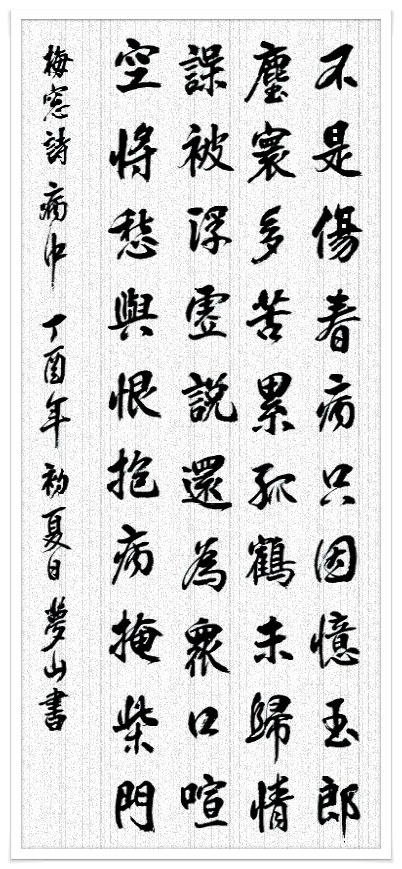 不是傷春病只因憶玉郎
塵寰多苦累孤鶴未歸情
誤被浮虛說還為衆口喧
空將愁與恨抱病掩柴門
梅窓詩 病中 丁酉年 初夏日 夢山書